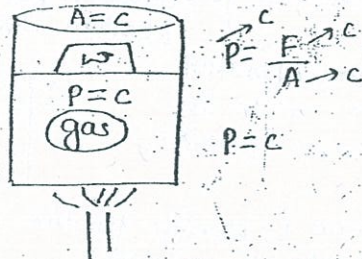 A = C
w
P = C
gas
C
P = F/A
C
C
P = C